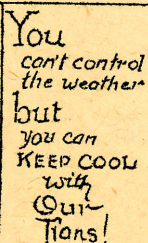 You
can't control
the weather
but
you can
KEEP COOL
with
Our
Fans!